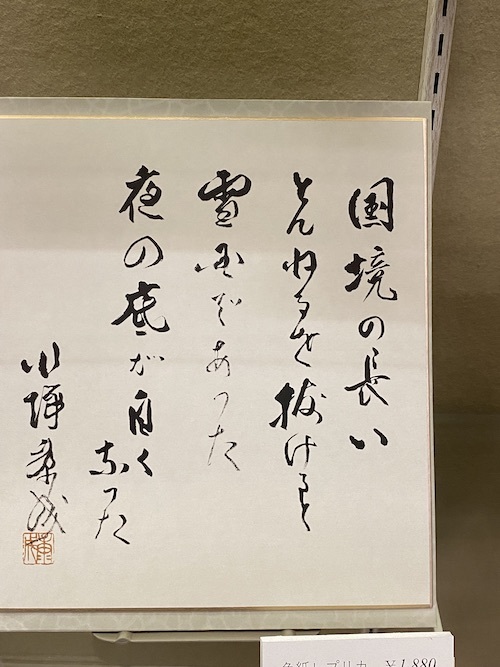 国境の長い
とんねるを抜けると
雪国であった
夜の底が白く
なった
川端康成
色紙レプリカ ¥1,880